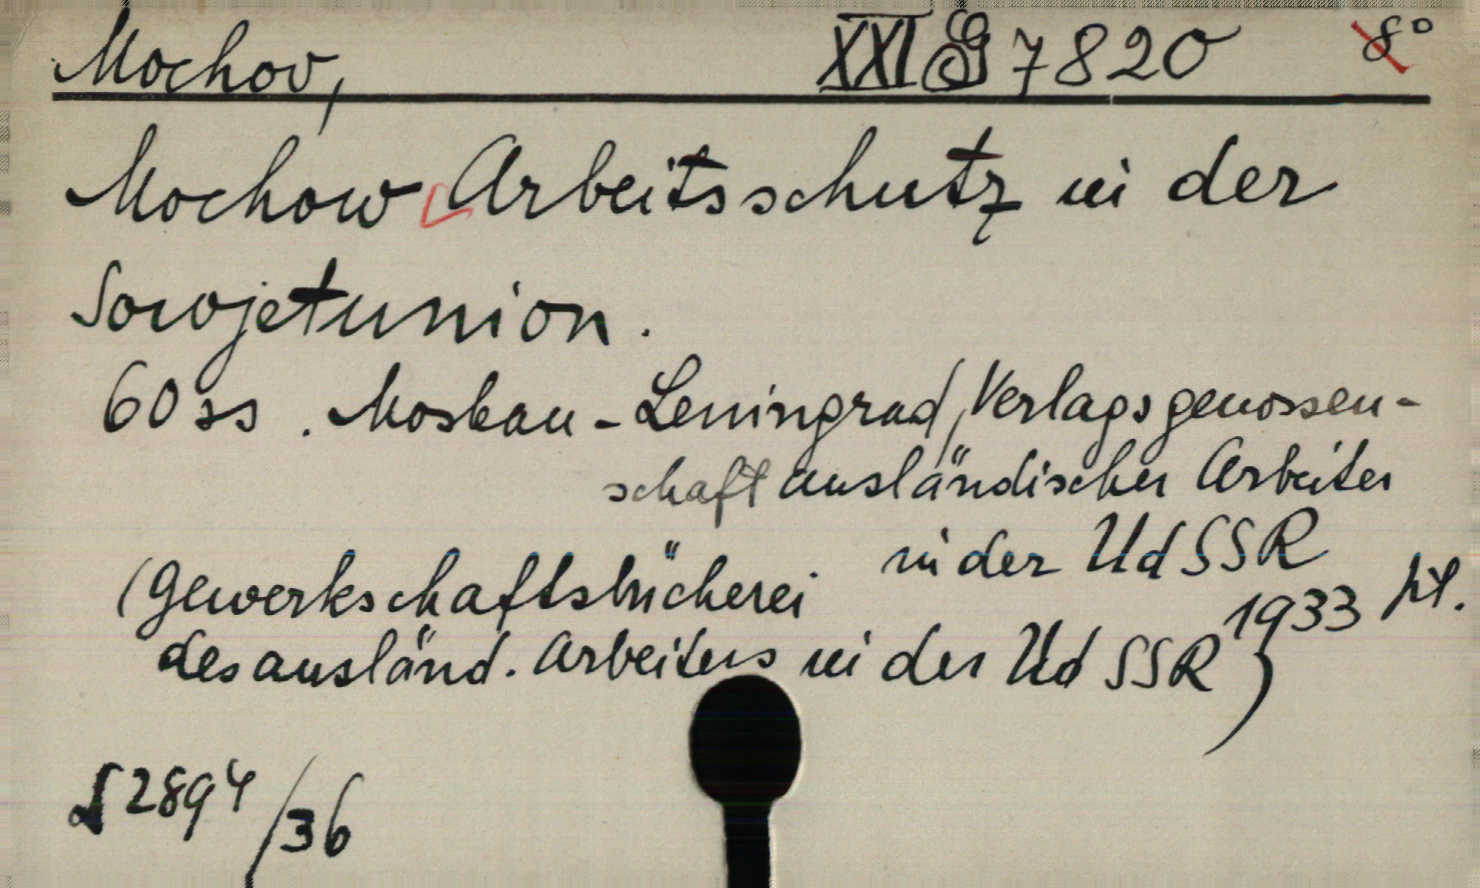 Mochov, XXI G 7820 8°
Mochow Arbeitsschutz in der
Sowjetunion.
60 ss. Moskau - Leningrad, Verlagsgenossen-
schaft ausländischer Arbeiter
in der UdSSR
(Gewerkschaftsbücherei 1933
des ausländ. Arbeiters in der UdSSR)
2894/36